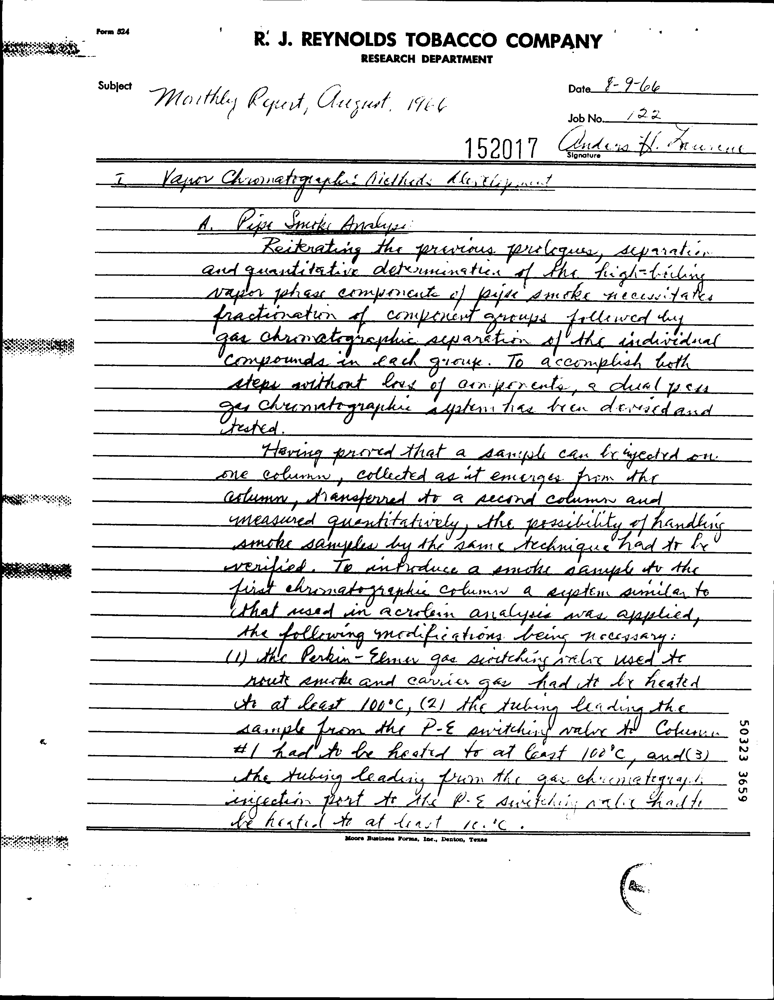 Form 524
R. J. REYNOLDS TOBACCO COMPANY
RESEARCH DEPARTMENT
Subject Monthly Report, August, 1966
Date 8-9-66
Job No. 122
152017
Anders H. Laurene
Signature
I Vapor Chromatographic Methods Development
A. Pipe Smoke Analysis:
Reiterating the previous prologues, separation
and quantitative determination of the high-boiling
vapor phase components of pipe smoke necessitates
fractionation of component groups followed by
gas chromatographic separation of the individual
compounds in each group. To accomplish both
steps without loss of components, a dual pass
gas chromatographic system has been devised and
tested.
Having proved that a sample can be injected on
one column, collected as it emerges from the
column, transferred to a second column and
measured quantitatively, the possibility of handling
smoke samples by the same technique had to be
verified. To introduce a smoke sample to the
first chromatographic column a system similar to
that used in acrolein analysis was applied,
the following modifications being necessary:
(1) the Perkin-Elmer gas switching valve used to
route smoke and carrier gas had to be heated
to at least 100°C, (2) the tubing leading the
sample from the P-E switching valve to Column
#1 had to be heated to at least 100°C, and (3)
the tubing leading from the gas chromatograph
injection port to the P-E switching valve had to
be heated to at least 100°C.
Moore Business Forms, Inc., Denton, Texas
50323 3659